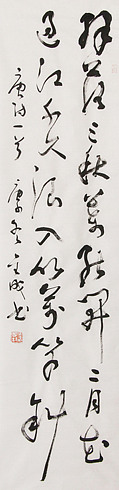 解落三秋葉能開二月花
過江千尺浪入竹萬竿斜
唐詩一首 書